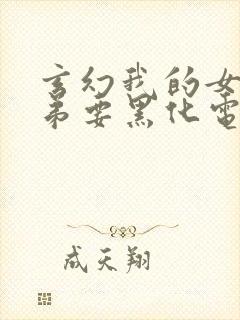 玄幻我的女
弟要黑化电
成天翔